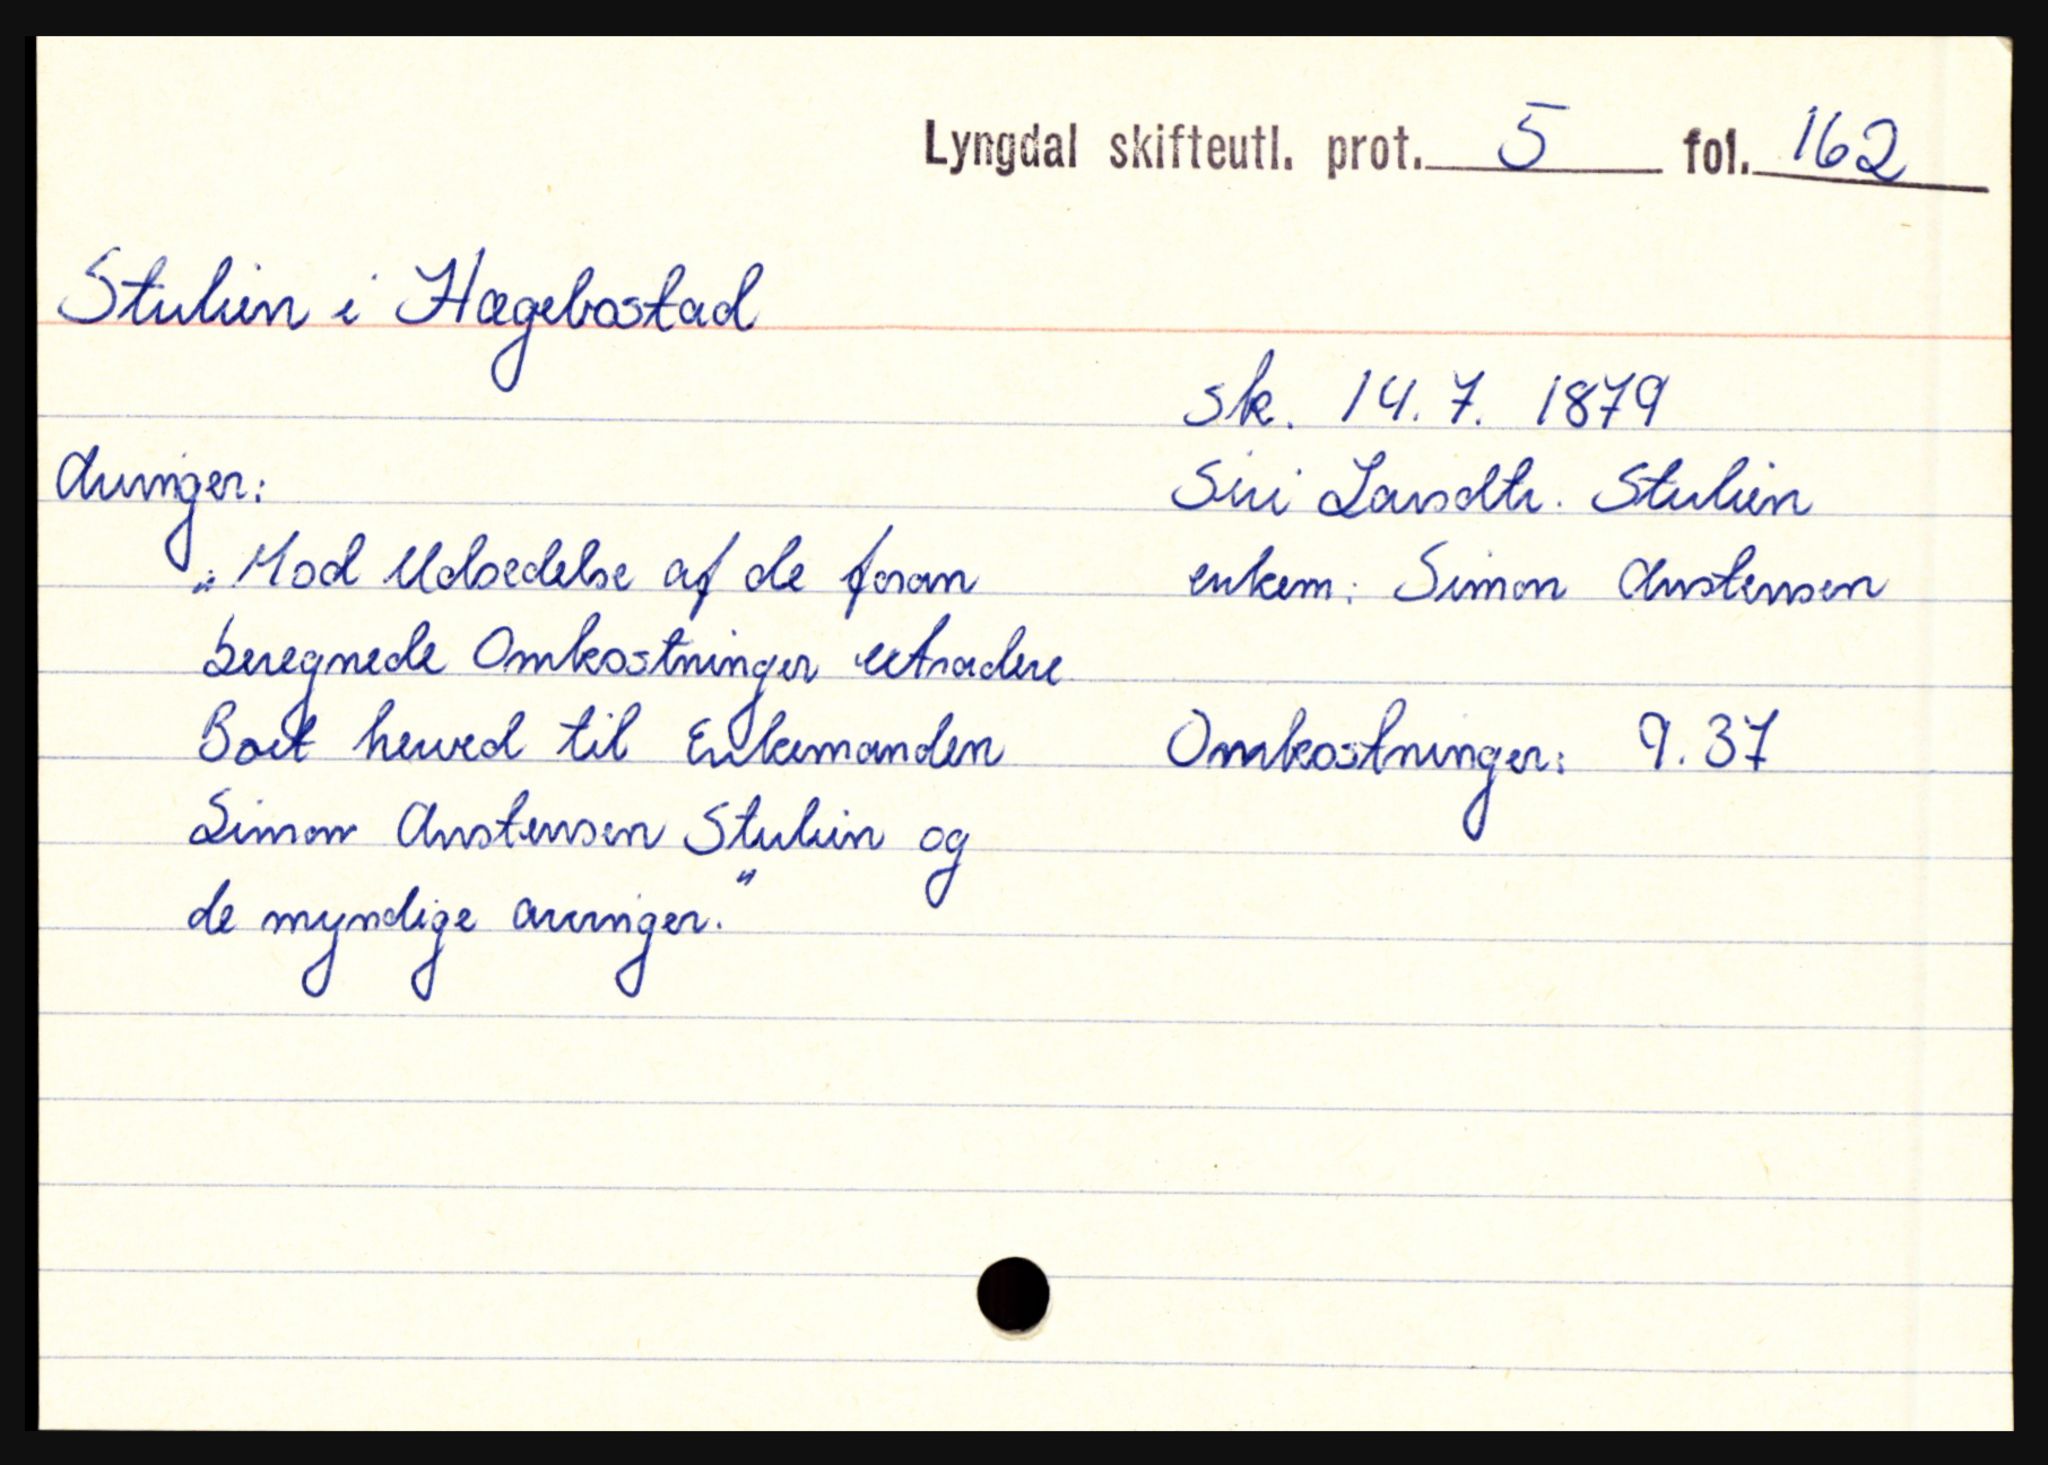 Lyngdal skifteutl. prot. 5 fol. 162
Stulien i Hægebostad
sk. 14. 7. 1879
Siri Larsdtr. Stulien
enkem: Simon Austensen
Omkostninger: 9.37
Arvinger:
"Mod Udredelse af de foran
beregnede Omkostninger extradere
Boet herved til Enkemanden
Simon Austensen Stulien og
de myndige arvinger."